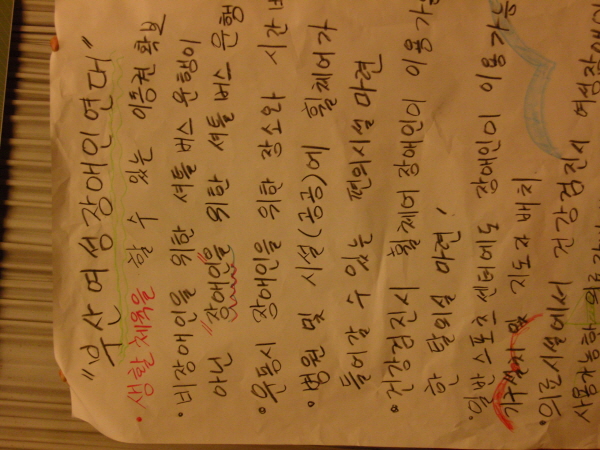 "부산여성장애인연대"
• 생활체육을 할 수 있는 이동권 확보
• 비장애인을 위한 셔틀버스 운행이
아닌 "장애인을 위한 셔틀 버스 운행
• 운동시 장애인을 위한 장소와 시간
• 병원 및 시설(공공)에 휠체어가
들어갈 수 있는 편의시설 마련
• 건강검진시 휠체어 장애인이 이용가능
한 탈의실 마련,
• 일반스포츠센터에도 장애인이 이용가능
기구설치 및 지도자 배치
• 의료시설에서 건강검진시 여성장애인